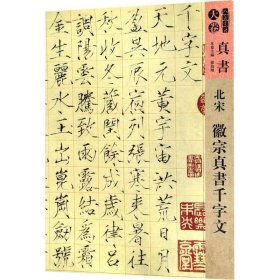 真書
北宋
徽宗真書千字文
千字文
天地元黃宇宙洪荒日月
盈昃辰宿列張寒來暑往
秋收冬藏閏餘成歲律呂
調陽雲騰致雨露結為霜
金生麗水玉出崑岡劍號